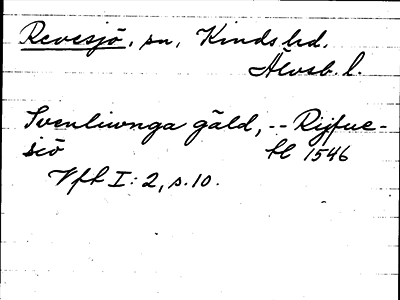 Revesjö, sn, Kinds hd.
Älvsb. l.
Svenliwnga gäld, -- Rijfue-
siö hl 1546
Vfh I: 2, s. 10.